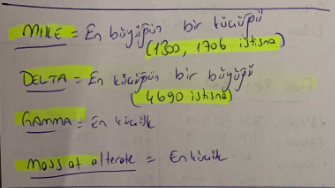 MILE = En büyüğün bir küçüğü
(1300, 1706 istisna)
DELTA = En küçüğün bir büyüğü
(4690 istisna)
GAMMA = En küçük
Mass at alterate = En küçük